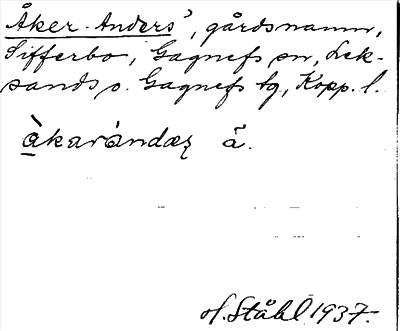 Åker-Anders', gårdsnamn,
Sifferbo, Gagnefs sn, Lek-
sands o. Gagnefs tg, Kopp. l.
å̀karándaʂ ã.
H. Ståhl 1937.